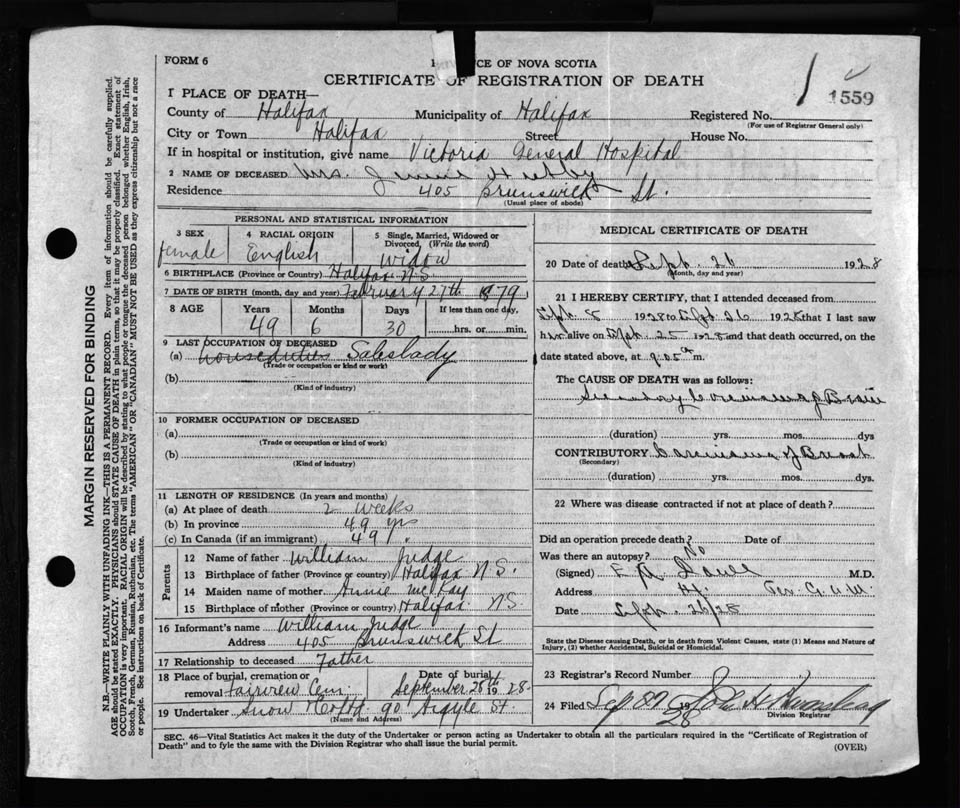 FORM 6
CE OF NOVA SCOTIA
CERTIFICATE OF REGISTRATION OF DEATH
1559
1 PLACE OF DEATH—
County of Halifax Municipality of Halifax Registered No.
(For use of Registrar General only)
City or Town Halifax Street House No.
If in hospital or institution, give name Victoria General Hospital
2 NAME OF DECEASED Mrs. Jennie
Residence 405 Brunswick St.
(Usual place of abode)
PERSONAL AND STATISTICAL INFORMATION
3 SEX 4 RACIAL ORIGIN 5 Single, Married, Widowed or Divorced, (Write the word)
female English Widow
6 BIRTHPLACE (Province or Country) Halifax N.S.
7 DATE OF BIRTH (month, day and year) February 27th 1879
8 AGE Years Months Days If less than one day,
49 6 30 hrs. or min.
9 LAST OCCUPATION OF DECEASED
(a) houseduties Saleslady
(Trade or occupation or kind or work)
(b)
(Kind of industry)
10 FORMER OCCUPATION OF DECEASED
(a)
(Trade or occupation or kind of work)
(b)
(Kind of industry)
11 LENGTH OF RESIDENCE (In years and months)
(a) At place of death 2 weeks
(b) In province 49 yrs
(c) In Canada (if an immigrant) 49 y.
Parents
12 Name of father William Judge
13 Birthplace of father (Province or country) Halifax N.S.
14 Maiden name of mother Annie McKay
15 Birthplace of mother (Province or country) Halifax N.S.
16 Informant's name William Judge
Address 405 Brunswick St
17 Relationship to deceased Father
18 Place of burial, cremation or Date of burial
removal Fairview Cem. September 28th 1928
19 Undertaker Snow & Co Ltd 90 Argyle St
(Name and Address)
MEDICAL CERTIFICATE OF DEATH
20 Date of death Sept. 26 1928
(Month, day and year)
21 I HEREBY CERTIFY, that I attended deceased from
Sept. 8 1928 to Sept 26 1928 that I last saw
her alive on Sept. 25 1928 and that death occurred, on the
date stated above, at 9.05 a m.
The CAUSE OF DEATH was as follows:
Carcinoma of Brain
(duration) yrs. mos. dys
CONTRIBUTORY Carcinoma of Breast
(Secondary)
(duration) yrs. mos. dys.
22 Where was disease contracted if not at place of death?
Did an operation precede death? Date of
Was there an autopsy? No
(Signed) M.D.
Address
Date Sept. 26/28
State the Disease causing Death, or in death from Violent Causes, state (1) Means and Nature of
Injury, (2) whether Accidental, Suicidal or Homicidal.
23 Registrar's Record Number
24 Filed Sep 19 28
Division Registrar
SEC. 46—Vital Statistics Act makes it the duty of the Undertaker or person acting as Undertaker to obtain all the particulars required in the "Certificate of Registration of
Death" and to fyle the same with the Division Registrar who shall issue the burial permit.
(OVER)
MARGIN RESERVED FOR BINDING
N.B.—WRITE PLAINLY WITH UNFADING INK—THIS IS A PERMANENT RECORD. Every item of information should be carefully supplied.
AGE should be stated EXACTLY. PHYSICIANS should STATE CAUSE OF DEATH in plain terms, so that it may be properly classified. Exact statement of
OCCUPATION is very important. RACIAL ORIGIN will be described by stating to what people or tongue the deceased person belonged whether English, Irish,
Scotch, French, German, Russian, Ruthenian, etc. The terms "AMERICAN" OR "CANADIAN" MUST NOT BE USED as they express citizenship but not a race
or people. See instructions on back of Certificate.